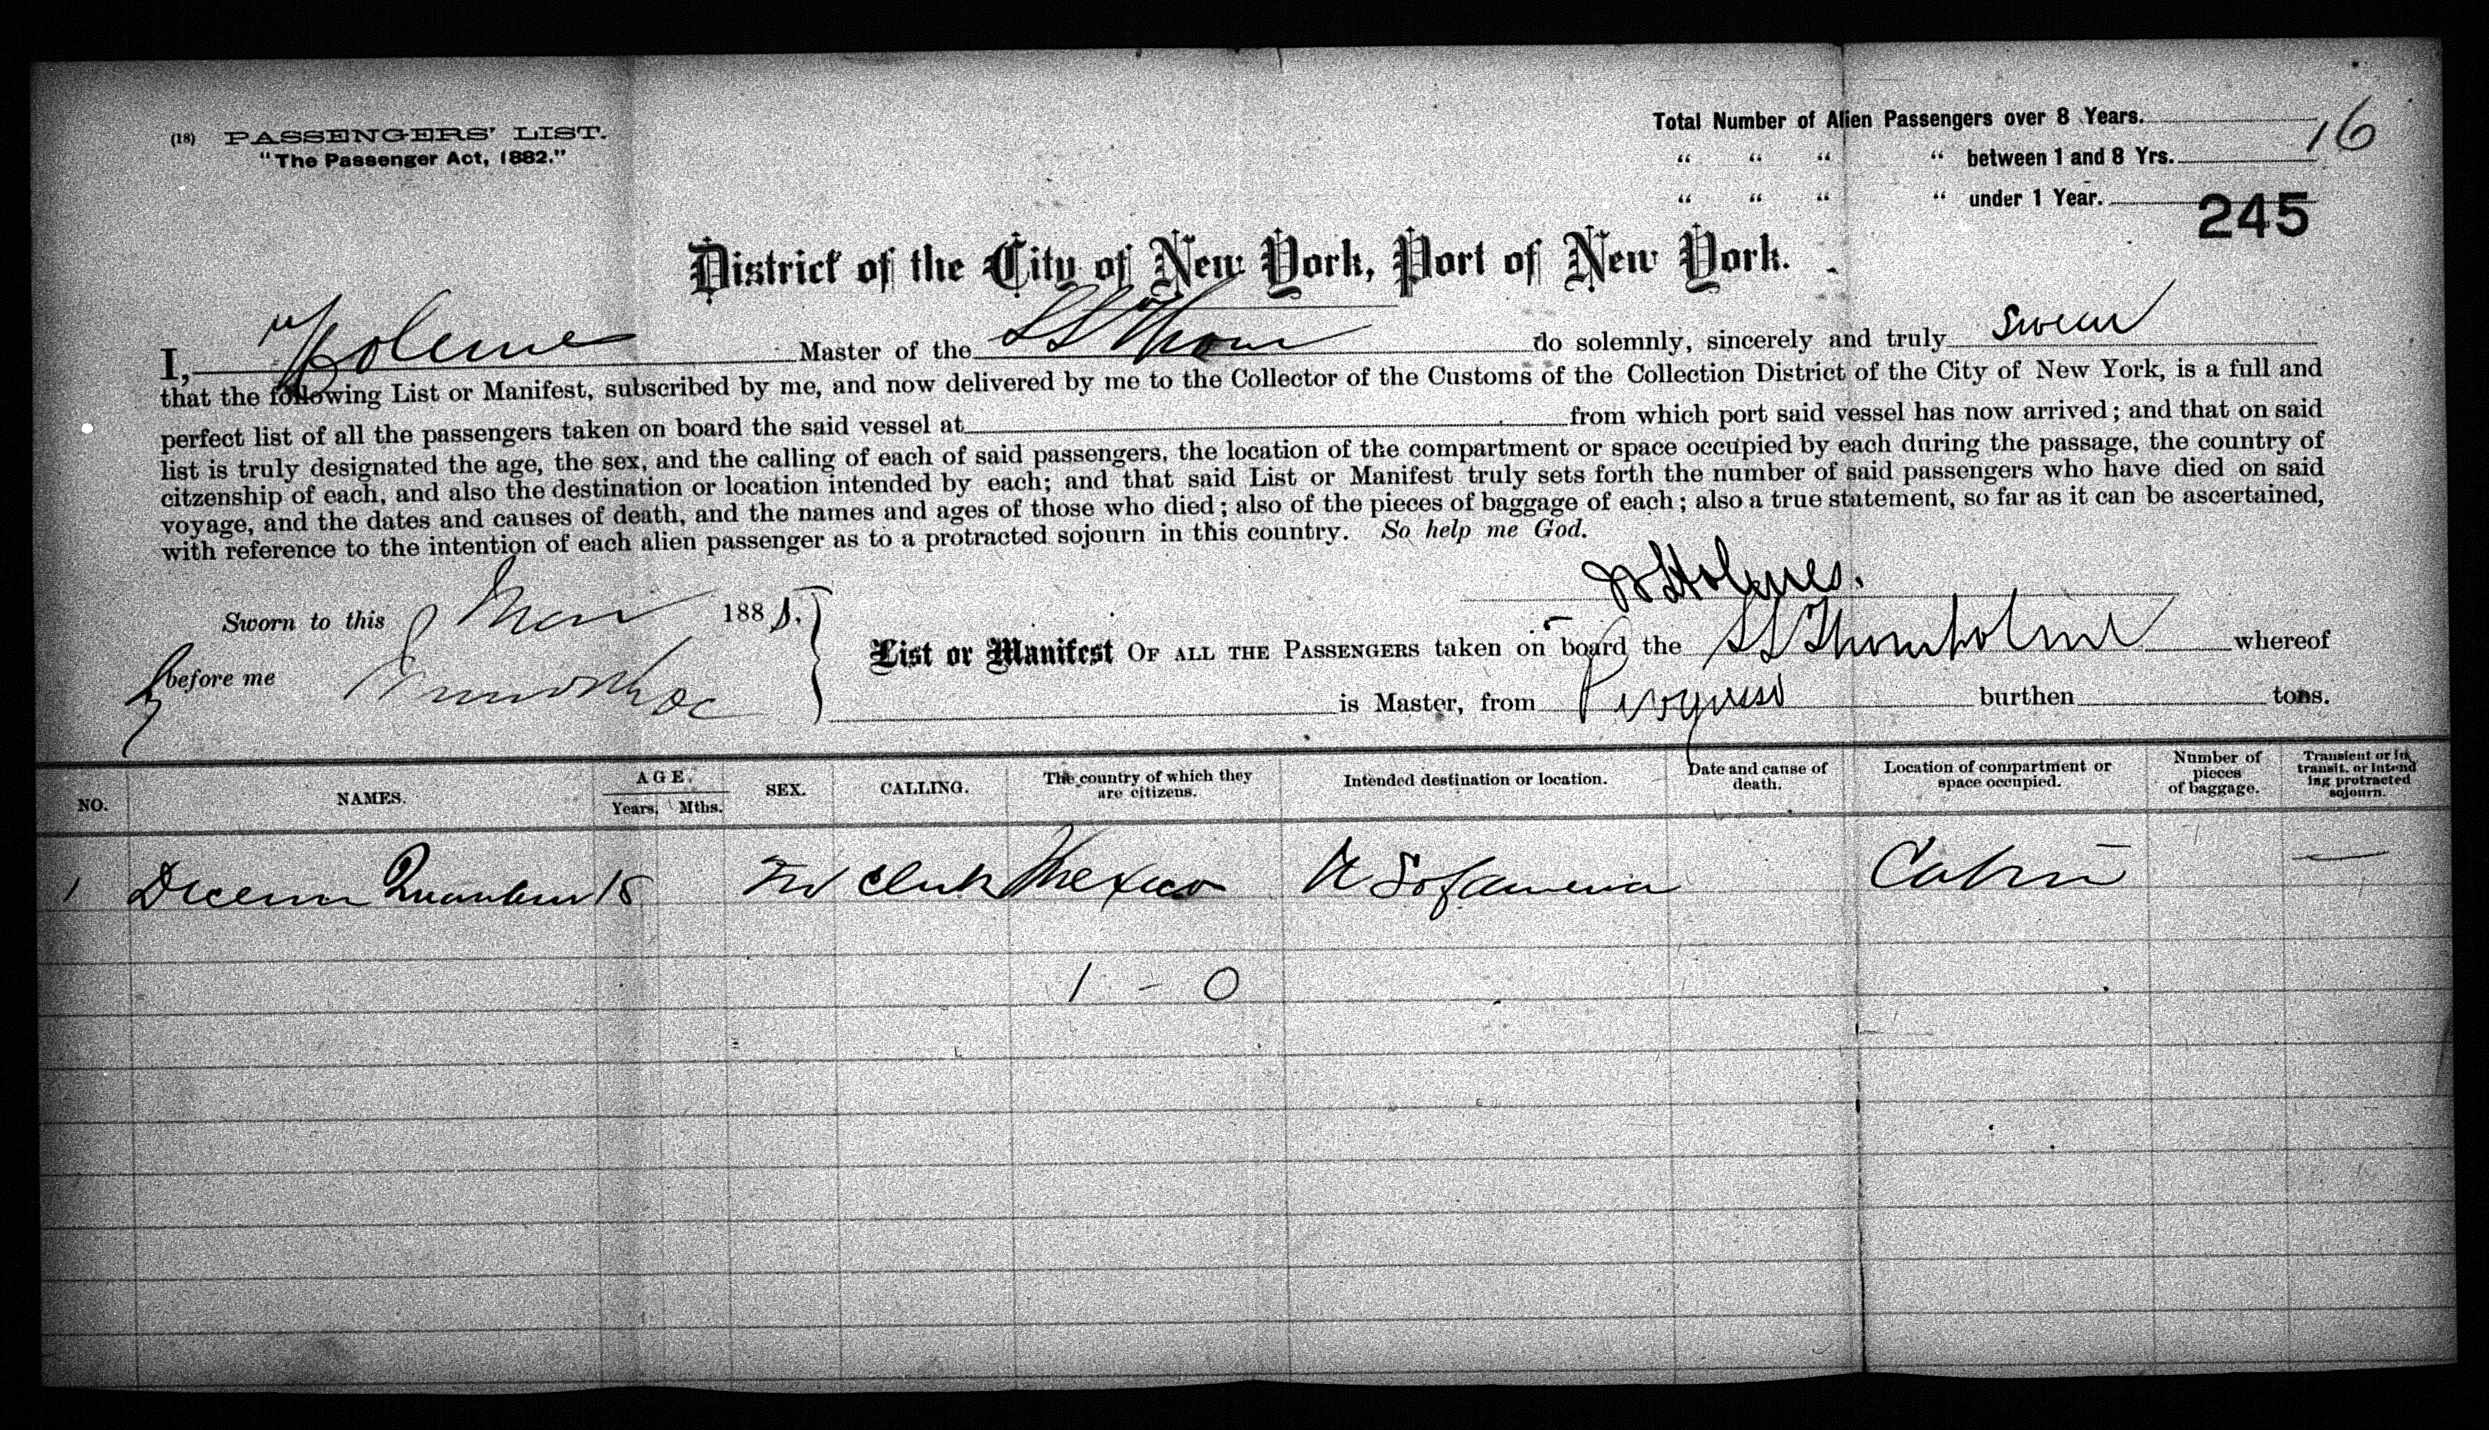 (18) PASSENGERS' LIST.
"The Passenger Act, 1882."
Total Number of Alien Passengers over 8 Years.
16
" " " " between 1 and 8 Yrs.
" " " " under 1 Year.
245
District of the City of New York, Port of New York.
I, Holme Master of the SS Thorn do solemnly, sincerely and truly swear
that the following List or Manifest, subscribed by me, and now delivered by me to the Collector of the Customs of the Collection District of the City of New York, is a full and
perfect list of all the passengers taken on board the said vessel at from which port said vessel has now arrived; and that on said
list is truly designated the age, the sex, and the calling of each of said passengers, the location of the compartment or space occupied by each during the passage, the country of
citzenship of each, and also the destination or location intended by each; and that said List or Manifest truly sets forth the number of said passengers who have died on said
voyage, and the dates and causes of death, and the names and ages of those who died; also of the pieces of baggage of each; also a true statement, so far as it can be ascertained,
with reference to the intention of each alien passenger as to a protracted sojourn in this country. So help me God.
Holmes.
Sworn to this 188
List or Manifest OF ALL THE PASSENGERS taken on board the SS Thornholme whereof
before me
is Master, from Progreso burthen tons.
NO. NAMES. AGE. Years. Mths. SEX. CALLING. The country of which they are citizens. Intended destination or location. Date and cause of death. Location of compartment or space occupied. Number of pieces of baggage. Transient or in transit, or intending protracted sojourn.
1 18 Clerk Mexico Cabin —
1 - 0